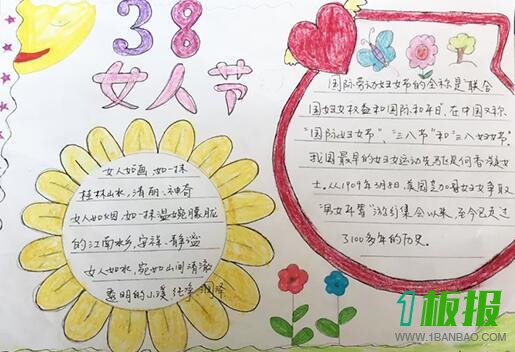 38
女人节
女人如画,如一抹
桂林山水,清丽、神奇
女人如烟,如一抹温婉朦胧
的江南水乡,安祥、静谧
女人如水,宛如山间清澈
透明的小溪 纯净
国际劳动妇女节的全称是"联合
国妇女权益和国际和平日,在中国又称
"国际妇女节"、"三八节"和"三八妇女节".
我国最早的妇女运动先驱是何香凝女
士,从1909年3月8日,美国芝加哥妇女争取
"男女平等"游行集会以来,至今已走过
了100多年的历史.
1板报
WWW.1BANBAO.COM